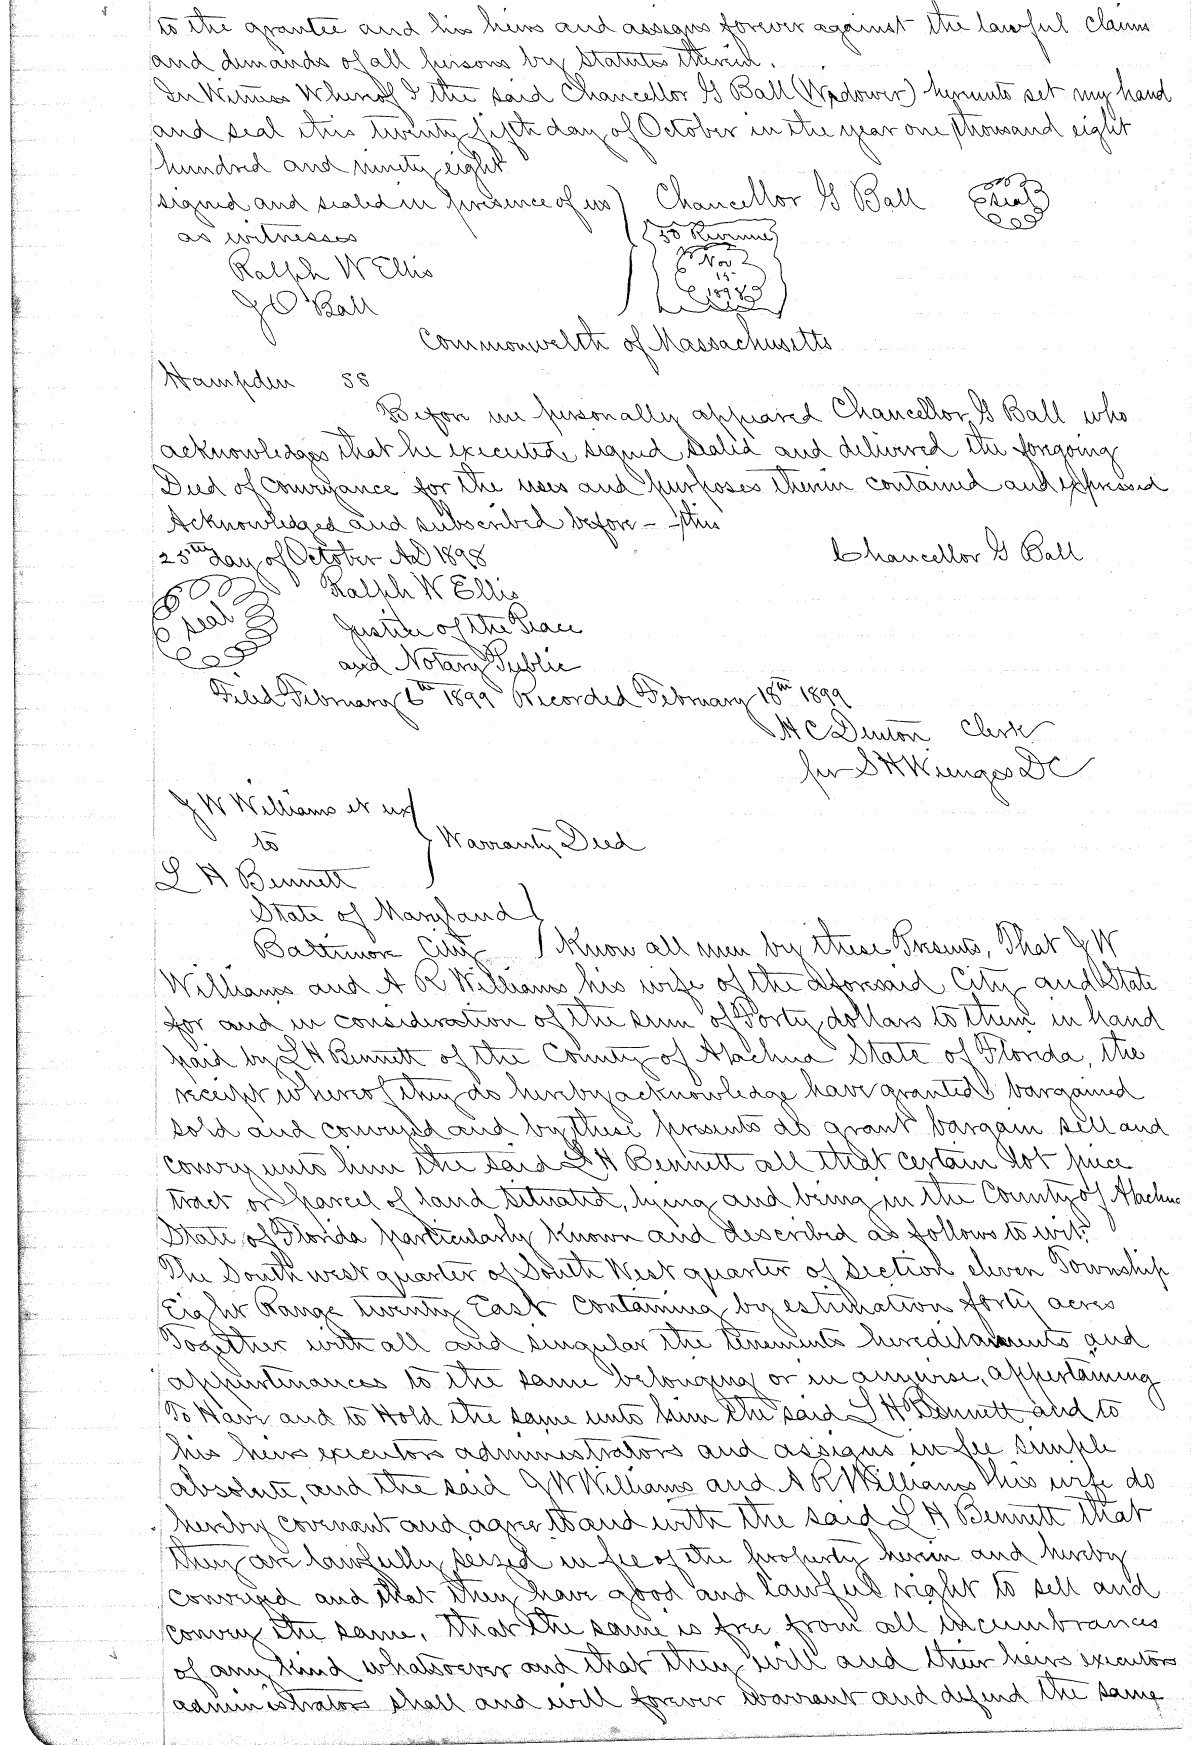 to the grantee and his heirs and assigns forever against the lawful claims
and demands of all persons by Statutes therein.
In Witness Whereof I the said Chancellor G Ball (Widower) hereunto set my hand
and seal this twenty fifth day of October in the year one thousand eight
hundred and ninety eight
signed and sealed in presence of us) Chancellor G Ball (seal)
as witnesses
50 Revenue
Nov
15
1898
Ralph W Ellis
J O Ball
Commonwelth of Massachusetts
Hampden SS
Before me personally appeared Chancellor G Ball who
acknowledges that he executed, signed sealed and delivered the forgoing
Deed of Conveyance for the uses and purposes therein contained and expressed
Acknowledged and subscribed before - this
25th day of October AD 1898 Chancellor G Ball
Ralph W Ellis
seal Justice of the Peace
and Notary Public
Filed February 6th 1899 Recorded February 18th 1899
H C Denton Clerk
per S H Wienges DC
J W Williams et ux
to Warranty Deed
L H Bennett
State of Maryland
Baltimore City Know all men by these Presents, That J W
Williams and A R Williams his wife of the aforsaid City and State
for and in consideration of the sum of Forty dollars to them in hand
paid by L H Bennett of the County of Alachua State of Florida, the
receipt whereof they do hereby acknowledge have granted bargained
sold and conveyed and by these presents do grant bargain sell and
convey unto him the said L H Bennett all that certain lot piece
tract or parcel of land situated, lying and being in the County of Alachua
State of Florida particularly known and described as follows to wit:
The South west quarter of South West quarter of Section eleven Township
Eight Range twenty East containing by estimation forty acres
Together with all and singular the tenements hereditaments and
appurtenances to the same belonging or in anywise, appertaining
To Have and to Hold the same unto him the said L H Bennett and to
his heirs executors administrators and assigns in fee simple
absolute, and the said J W Williams and A R Williams his wife do
hereby covenant and agree to and with the said L H Bennett that
they are lawfully seized in fee of the property herein and hereby
conveyed and that they have good and lawful right to sell and
convey the same, that the same is free from all incumbrances
of any kind whatsoever and that they will and their heirs executors
administrators shall and will forever warrant and defend the same